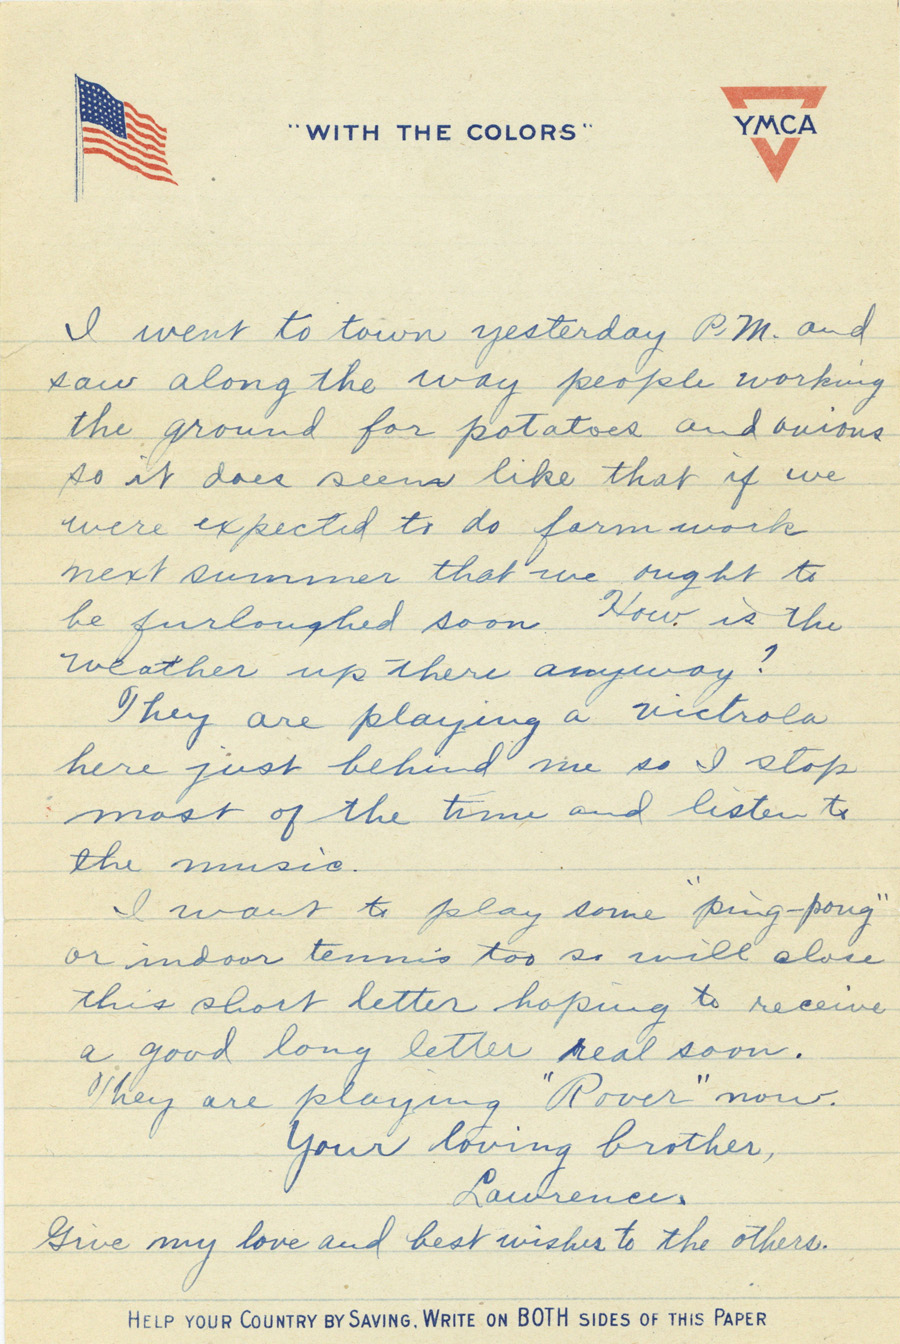 "WITH THE COLORS"
YMCA
I went to town yesterday P.M. and
saw along the way people working
the ground for potatoes and onions
so it does seem like that if we
were expected to do farm work
next summer that we ought to
be furloughed soon. How is the
weather up there anyway?
They are playing a victrola
here just behind me so I stop
most of the time and listen to
the music.
I want to play some "ping-pong"
or indoor tennis too so will close
this short letter hoping to receive
a good long letter real soon.
They are playing "Rover" now.
Your loving brother,
Lawrence.
Give my love and best wishes to the others.
HELP YOUR COUNTRY BY SAVING. WRITE ON BOTH SIDES OF THIS PAPER